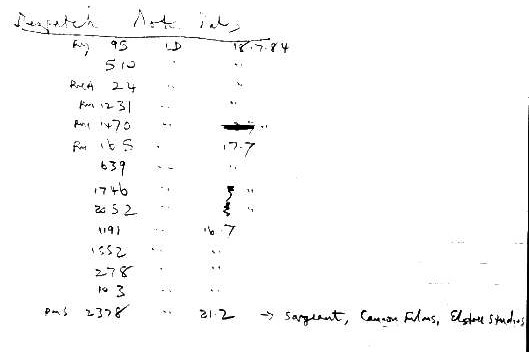 Despatch Note Date
Rm 95 LD 18.7.84
510 " "
RmA 24 " "
Rm 1231 " "
Rm 1470 " "
Rm 165 " 17.7
639 " "
1746 " "
2052 " "
1191 " 16.7
1552 " "
278 " "
103 " "
RmS 2378 " 21.2 → Sargeant, Cannon Films, Elstree Studios